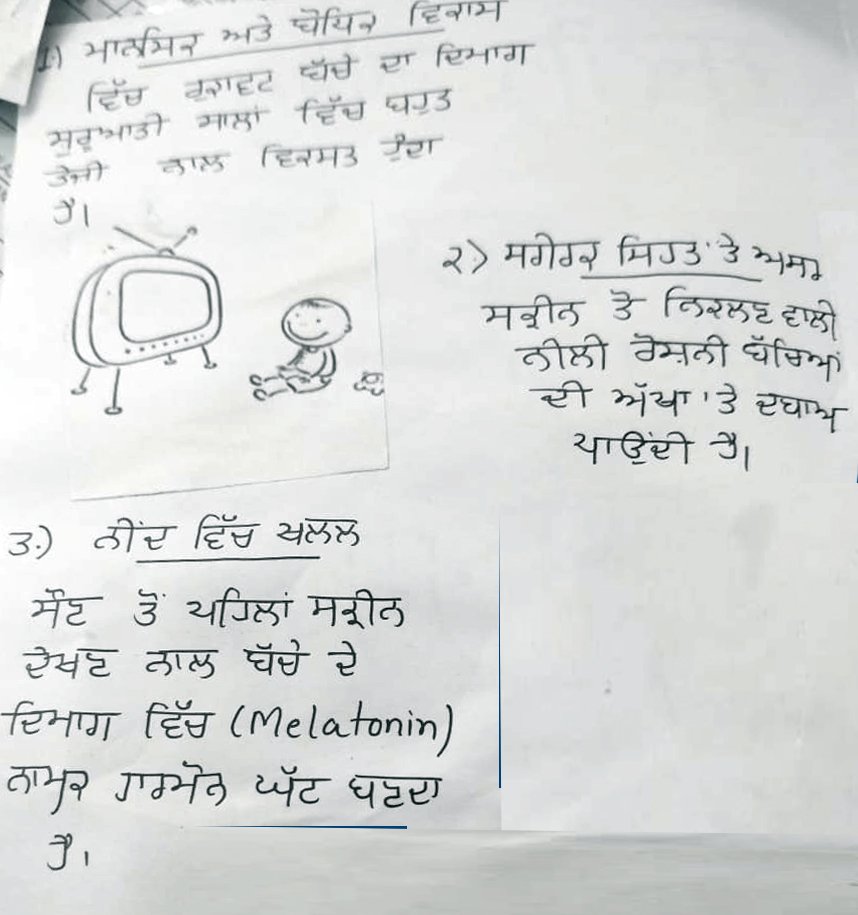 1.) ਮਾਨਸਿਕ ਅਤੇ ਬੌਧਿਕ ਵਿਕਾਸ
ਵਿੱਚ ਰੁਕਾਵਟ ਬੱਚੇ ਦਾ ਦਿਮਾਗ
ਸ਼ੁਰੂਆਤੀ ਸਾਲਾਂ ਵਿੱਚ ਬਹੁਤ
ਤੇਜੀ ਨਾਲ ਵਿਕਸਤ ਹੁੰਦਾ
ਹੈ।
੨) ਸਰੀਰਕ ਸਿਹਤ 'ਤੇ ਅਸਰ
ਸਕ੍ਰੀਨ ਤੋਂ ਨਿਕਲਣ ਵਾਲੀ
ਨੀਲੀ ਰੋਸ਼ਨੀ ਬੱਚਿਆਂ
ਦੀ ਅੱਖਾ 'ਤੇ ਦਬਾਅ
ਪਾਉਂਦੀ ਹੈ।
੩.) ਨੀਂਦ ਵਿੱਚ ਖਲਲ
ਸੌਣ ਤੋਂ ਪਹਿਲਾਂ ਸਕ੍ਰੀਨ
ਦੇਖਣ ਨਾਲ ਬੱਚੇ ਦੇ
ਦਿਮਾਗ ਵਿੱਚ (Melatonin)
ਨਾਮਕ ਹਾਰਮੋਨ ਘੱਟ ਬਣਦਾ
ਹੈ।